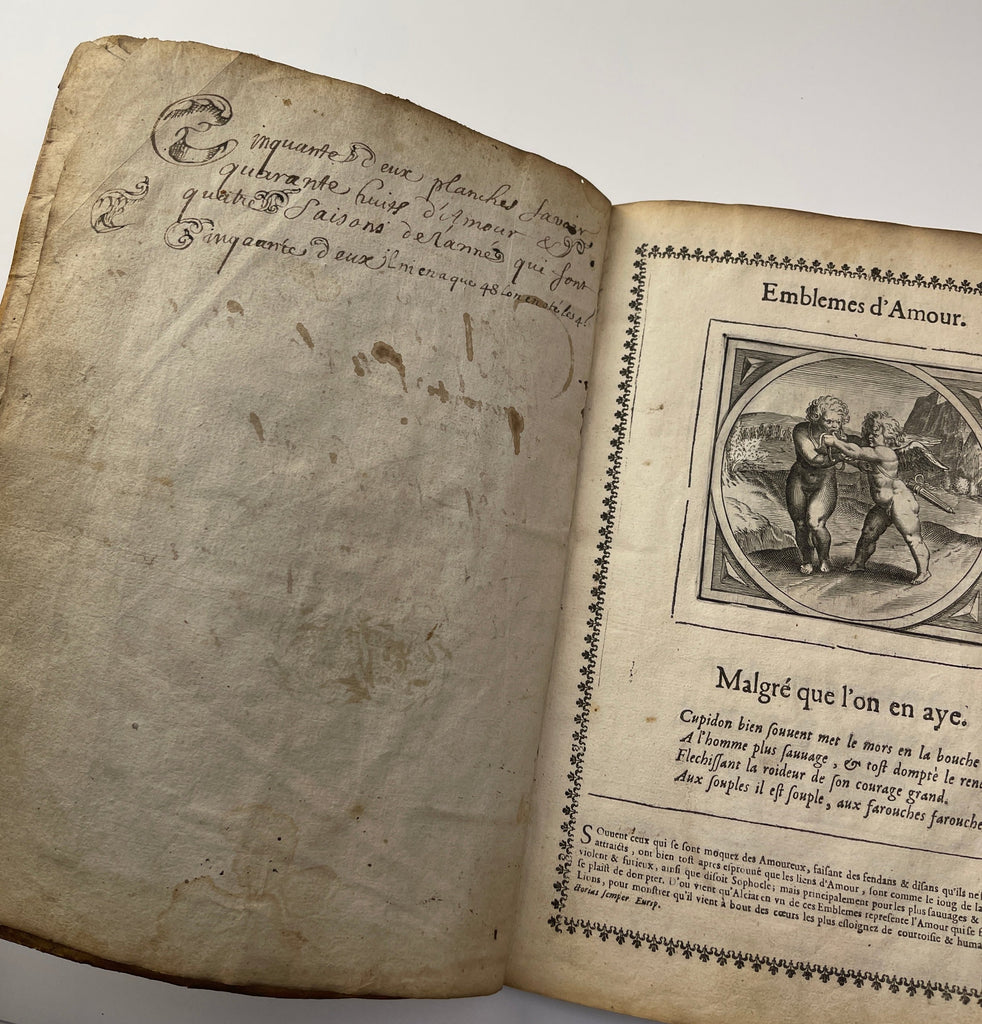 Cinquante Deux planches savoir
quarante huiss d'Amour &
quattre Saisons de l'année qui sont
Cinquante deux il men a que 48 lon en oté les 4
Emblemes d'Amour.
Malgré que l'on en aye.
Cupidon bien ſouuent met le mors en la bouche
A l'homme plus ſauuage, & toſt dompté le rend
Flechiſſant la roideur de ſon courage grand.
Aux ſouples il eſt ſouple, aux farouches farouche
SOuuent ceux qui ſe ſont moquez des Amoureux, faiſant des fendans & diſans qu'ils ne
attraicts, ont bien toſt apres eſprouué que les liens d'Amour, ſont comme le ioug de la
violent & furieux, ainſi que diſoit Sophocle; mais principalement pour les plus ſauuages &
ſe plaiſt de dompter. D'ou vient qu'Alciat en vn de ces Emblemes repreſente l'Amour qui ſe
Lions, pour monſtrer qu'il vient à bout des cœurs les plus eſloignez de courtoiſie & huma
ctorias ſemper Eurip.